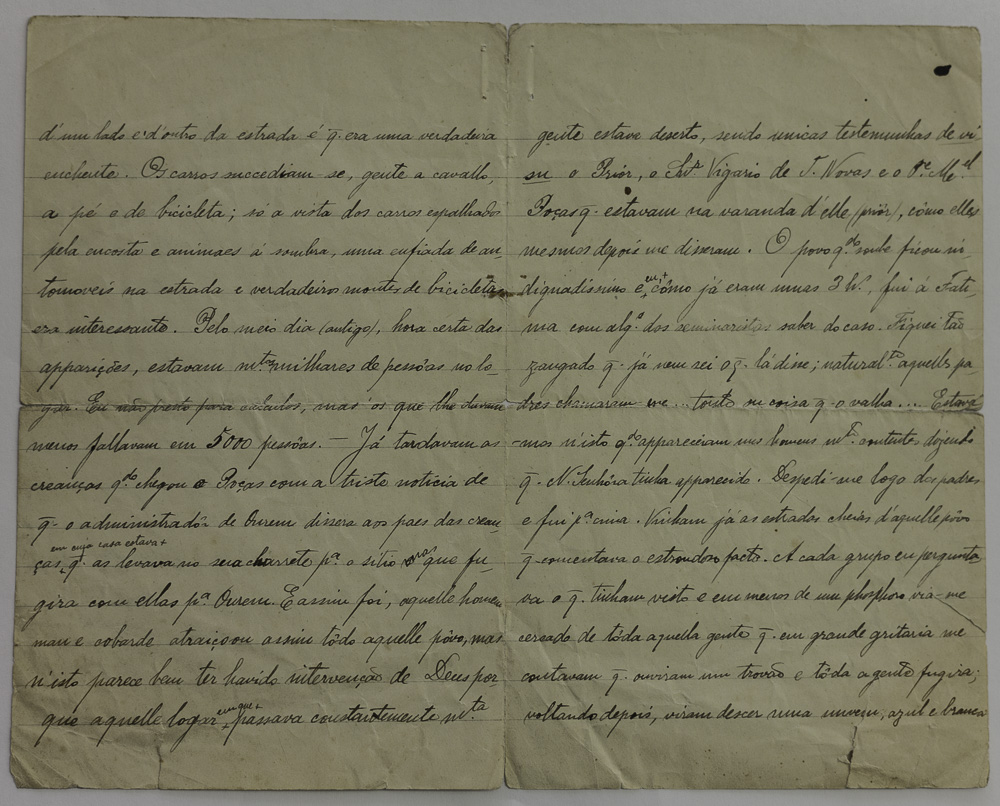 d'um lado e d'outro da estrada é q̄. era uma verdadeira
enchente. Os carros succediam-se, gente a cavallo,
a pé e de bicicleta; só a vista dos carros espalhados
pela encosta e animaes á sombra, uma enfiada de au-
tomoveis na estrada e verdadeiros montes de bicicletas
era interessante. Pelo meio dia (antigo), hora certa das
apparições, estavam mtas milhares de pessôas no lo-
gar. Eu não presto para calculos, mas os que lhe davam
menos fallavam em 5000 pessôas. — Já tardavam as
creanças qdo chegou o Poças com a triste noticia de
q̄. o administradôr de Ourem dissera aos paes das crean-
em cuja casa estava +
ças, q̄. as levava no seu charrete pa. o sitio mas que fu-
gira com ellas pa. Ourem. E assim foi, aquelle homem
mau e cobarde atraiçoou assim tôdo aquelle pôvo, mas
n'isto parece bem ter havido intervenção de Deus por-
que aquelle logar em que + passava constantemente mta
gente estava deserto, sendo unicas testemunhas de vi-
su o Priór, o Snr. Vigario de T. Novas e o Pe. Mel
Poças q̄. estavam na varanda d'elle (priôr), cômo elles
mesmos depois me disseram. O povo qdo soube ficou in-
dignadissimo e, em + cômo já eram umas 3 h., fui á Fati-
ma com algs. dos seminaristas saber do caso. Fiquei tão
zangado q̄. já nem sei o q̄. lá disse; naturalte aquelles pa-
dres chamaram-me... tonto ou coisa q̄. o valha... Estava-
mos n'isto qdo appareceram uns homens mto. contentes dizendo
q̄. N. Senhôra tinha apparecido. Despedi-me logo dos padres
e fui pa. cima. Vinham já as estradas cheias d'aquelle pôvo
q̄. comentava o estrondoso facto. A cada grupo eu pergunta-
va o q̄. tinham visto e em menos de um phosphoro via-me
cercado de tôda aquella gente q̄. em grande gritaria me
contavam q̄. ouviram um trovão e tôda a gente fugira;
voltando depois, viram descer uma nuvem, azul e branca